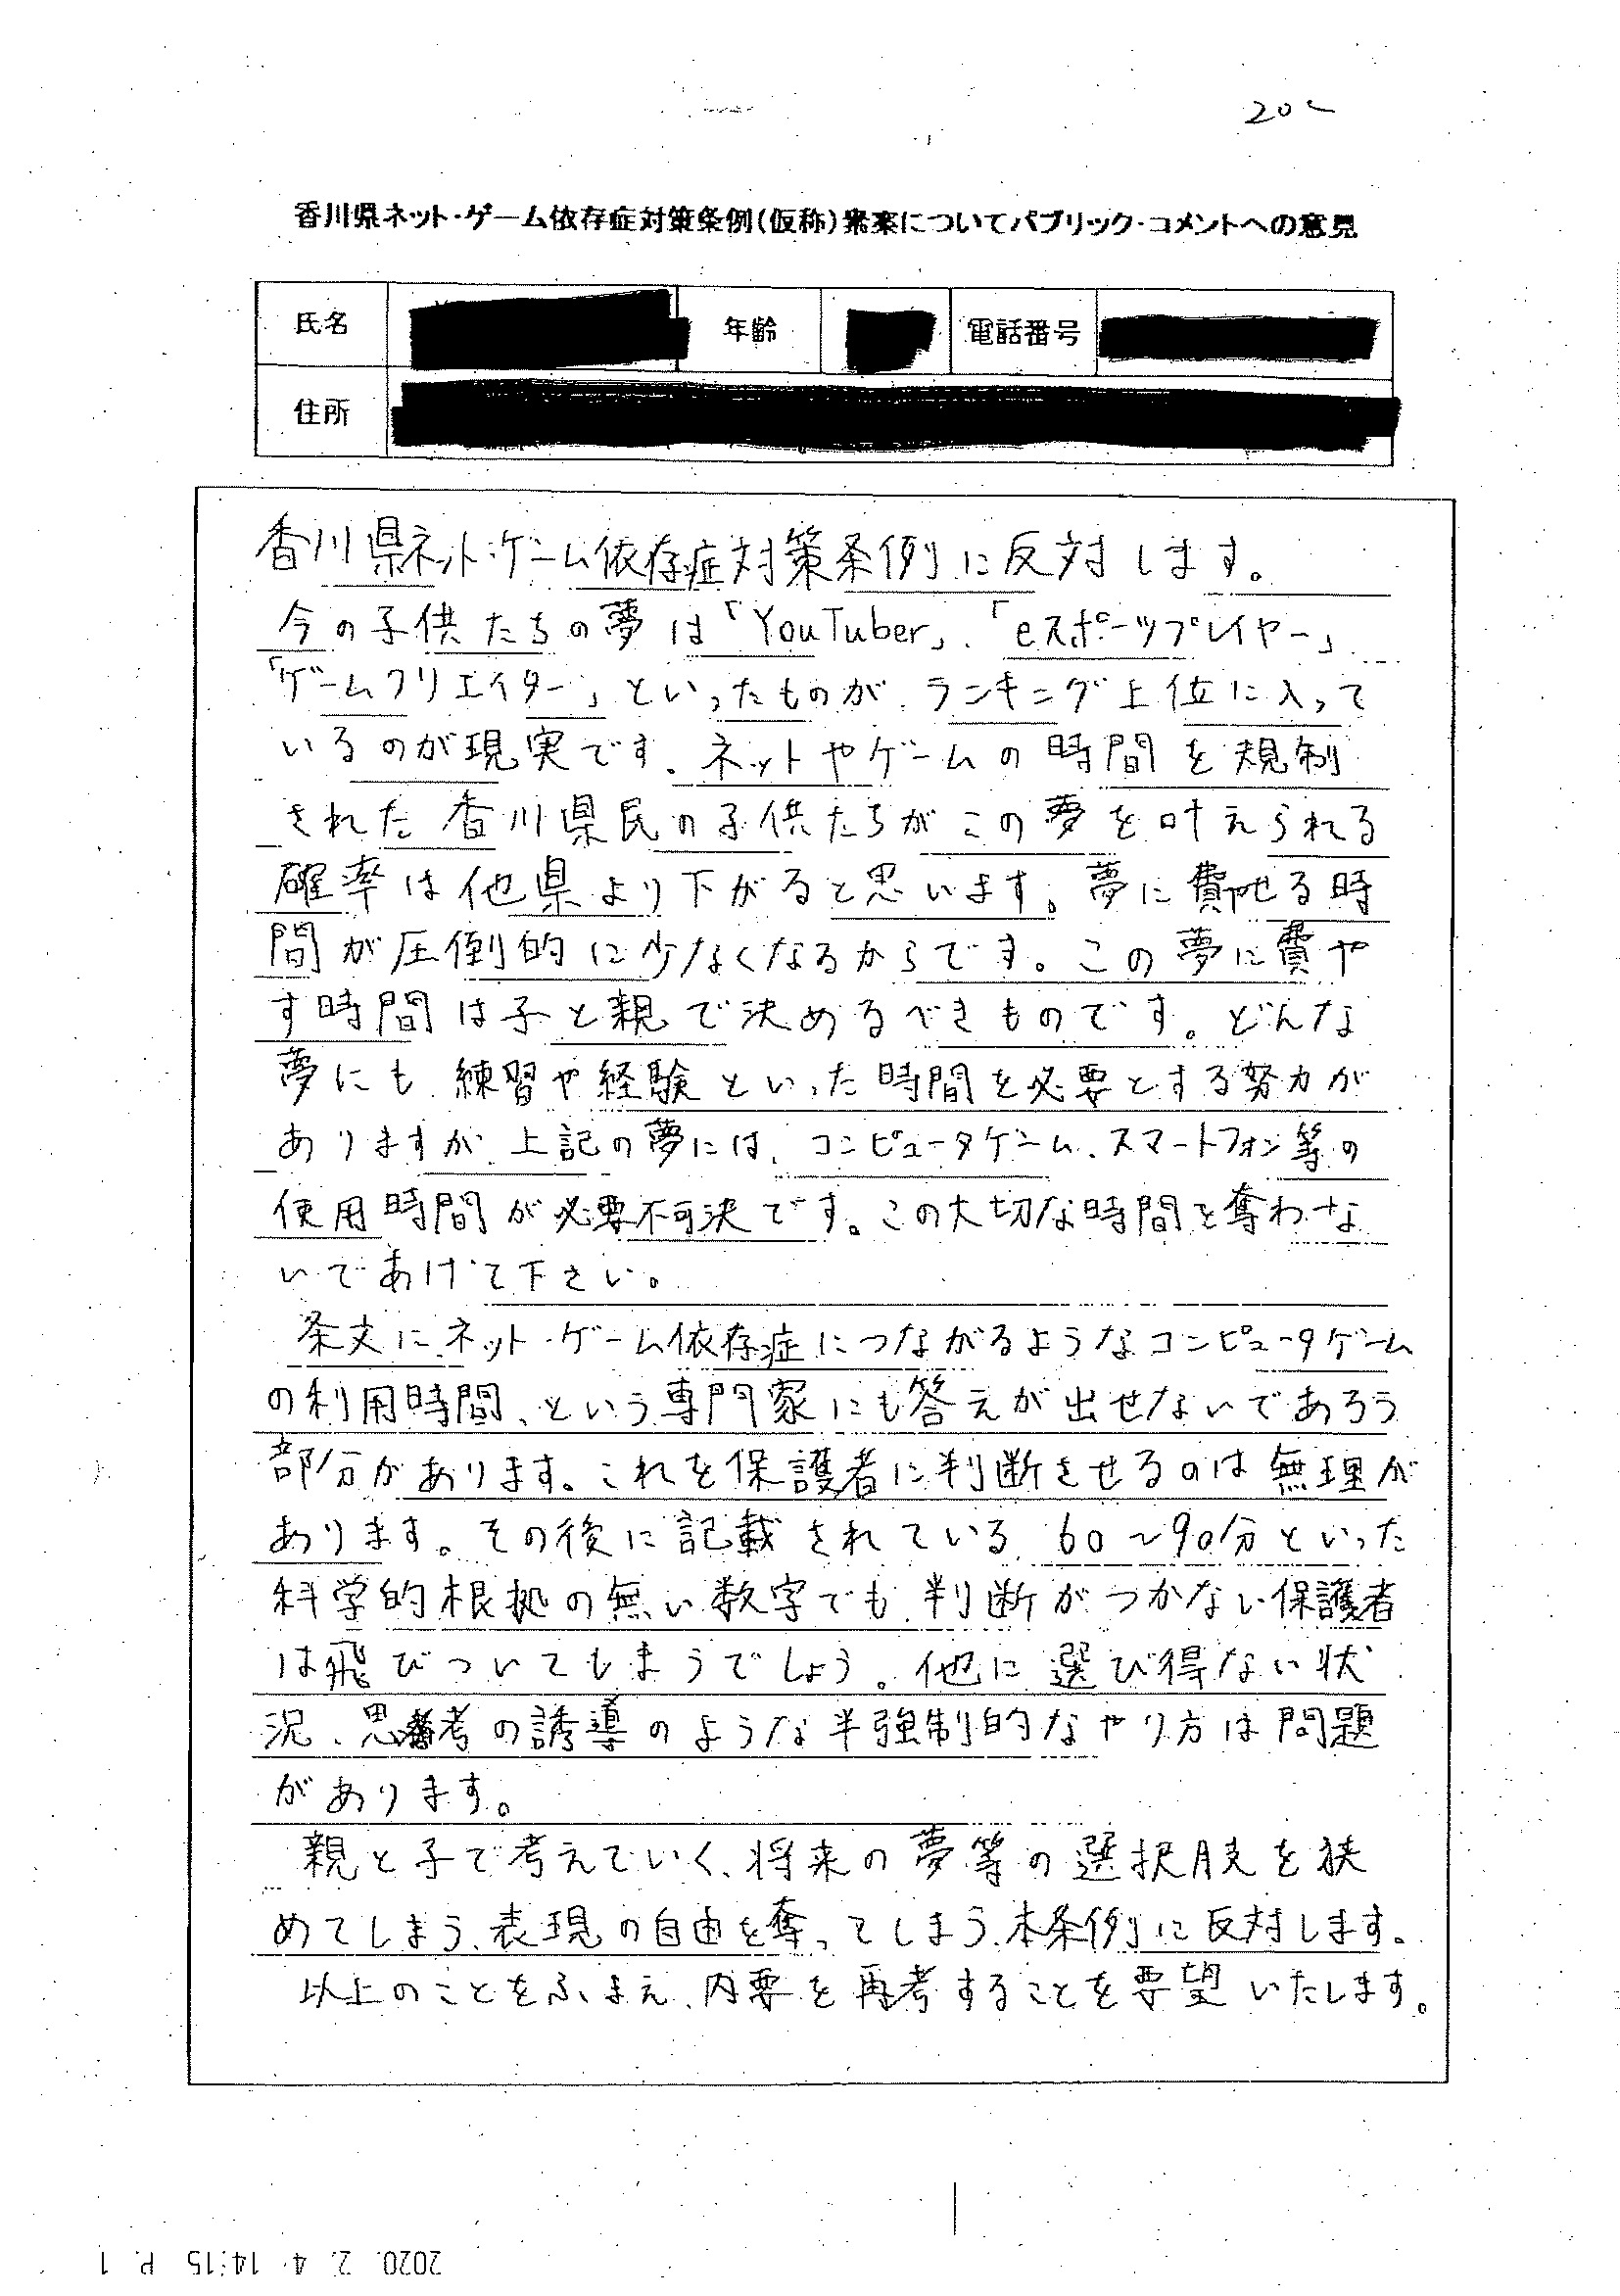 20
香川県ネット・ゲーム依存症対策条例(仮称)素案についてパブリック・コメントへの意見
氏名 年齢 電話番号
住所
香川県ネット・ゲーム依存症対策条例に反対します。
今の子供たちの夢は「YouTuber」、「eスポーツプレイヤー」
「ゲームクリエイター」といったものが、ランキング上位に入って
いるのが現実です。ネットやゲームの時間を規制
された香川県民の子供たちがこの夢を叶えられる
確率は他県より下がると思います。夢に費やせる時
間が圧倒的に少なくなるからです。この夢に費や
す時間は子と親で決めるべきものです。どんな
夢にも、練習や経験といった時間を必要とする努力が
ありますが、上記の夢には、コンピュータゲーム、スマートフォン等の
使用時間が必要不可決です。この大切な時間を奪わな
いであげて下さい。
条文にネット・ゲーム依存症につながるようなコンピュータゲーム
の利用時間、という専門家にも答えが出せないであろう
部分があります。これを保護者に判断させるのは無理が
あります。その後に記載されている、60～90分といった
科学的根拠の無い数字でも、判断がつかない保護者
は飛びついてしまうでしょう。他に選び得ない状
況、思考の誘導のような半強制的なやり方は問題
があります。
親と子で考えていく、将来の夢等の選択肢を狭
めてしまう、表現の自由を奪ってしまう、本条例に反対します。
以上のことをふまえ、内要を再考することを要望いたします。
2020. 2. 4 14:15 P. 1